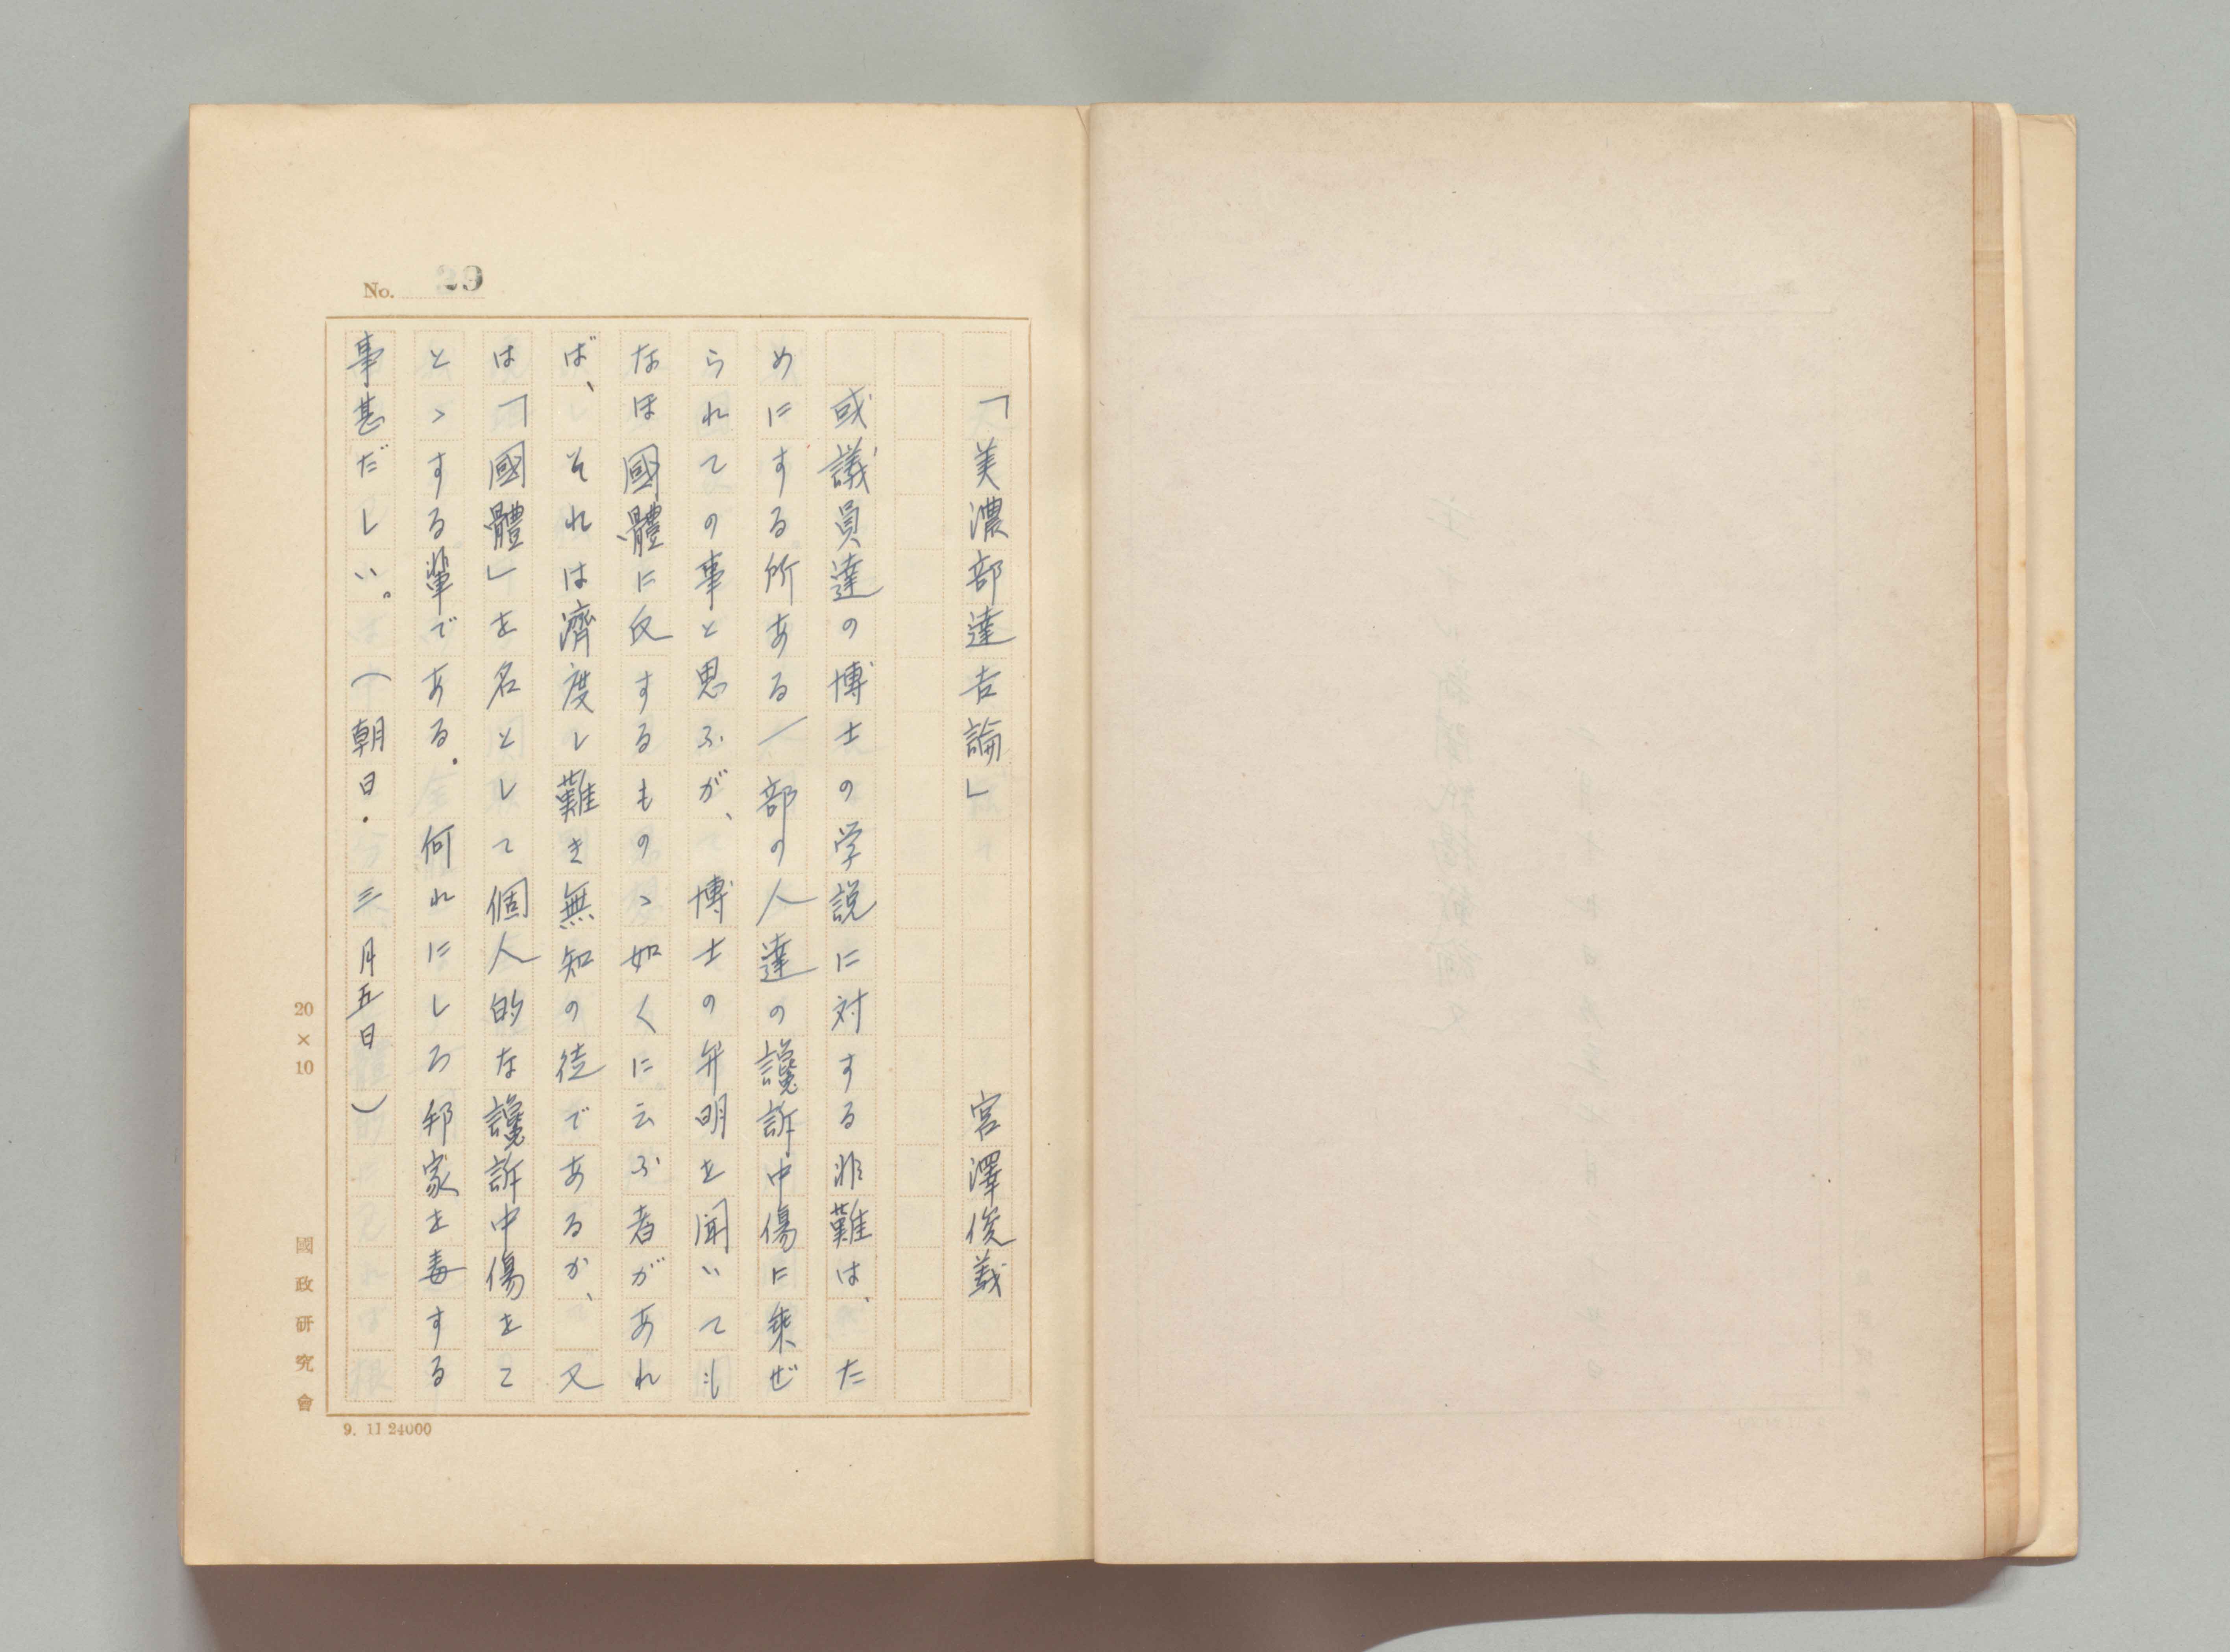 No. 29
「美濃部達吉論」　宮澤俊義
或議員達の博士の学説に対する非難は、た
めにする所ある一部の人達の讒訴中傷に乗ぜ
られての事と思ふが、博士の弁明を聞いても
なほ國體に反するものゝ如くに云ふ者があれ
ば、それは濟度し難き無知の徒であるか、又
は「國體」を名として個人的な讒訴中傷をこ
とゝする輩である。何れにしろ邦家を毒する
事甚だしい。（朝日・三月五日）
20×10
國政研究會
9. 11 24000